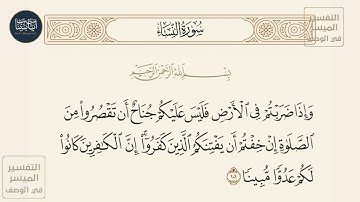 سُورَةُ النِّسَاءِ
التفسير
الميسر
في الوصف
بِسْمِ اللَّهِ الرَّحْمَٰنِ الرَّحِيمِ
وَإِذَا ضَرَبْتُمْ فِي الْأَرْضِ فَلَيْسَ عَلَيْكُمْ جُنَاحٌ أَن تَقْصُرُوا۟ مِنَ
الصَّلَوٰةِ إِنْ خِفْتُمْ أَن يَفْتِنَكُمُ الَّذِينَ كَفَرُوٓا۟ إِنَّ الْكَٰفِرِينَ كَانُوا۟
لَكُمْ عَدُوًّا مُّبِينًا ١٠١
التفسير
الميسر
في الوصف